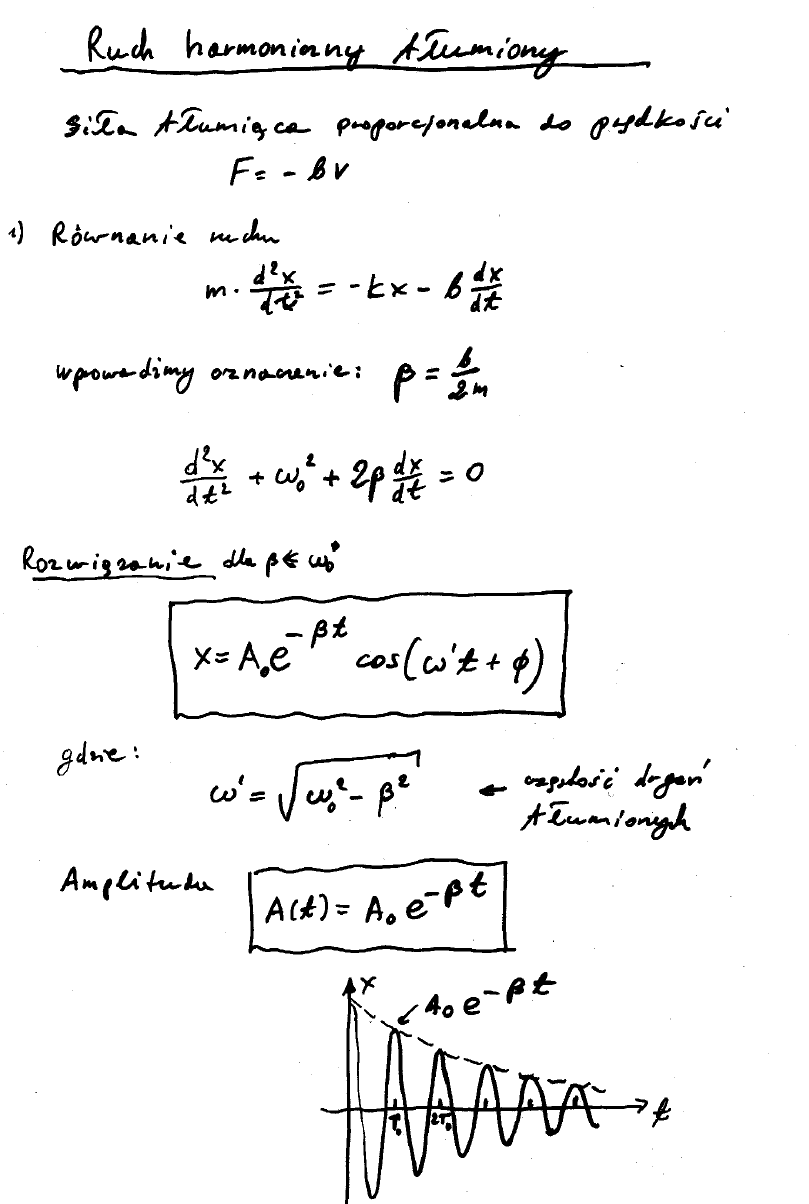 Ruch harmoniczny tłumiony
Siła tłumiąca proporcjonalna do prędkości
F = - bv
1) Równanie ruchu
m · d²x/dt² = -kx - b dx/dt
wprowadzimy oznaczenie: β = b/2m
d²x/dt² + ω₀² + 2β dx/dt = 0
Rozwiązanie dla β ≤ ω₀
x = A₀e^(-βt) cos(ω't + φ)
gdzie:
ω' = √(ω₀² - β²) ← częstość drgań
tłumionych
Amplituda A(t) = A₀ e^(-βt)
x
A₀ e^(-βt)
T₀ 2T₀ t